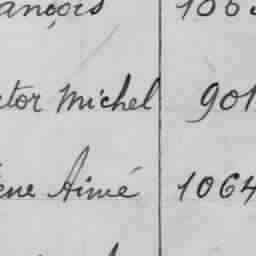 ançois
ctor Michel 901
ène Aimé 1064